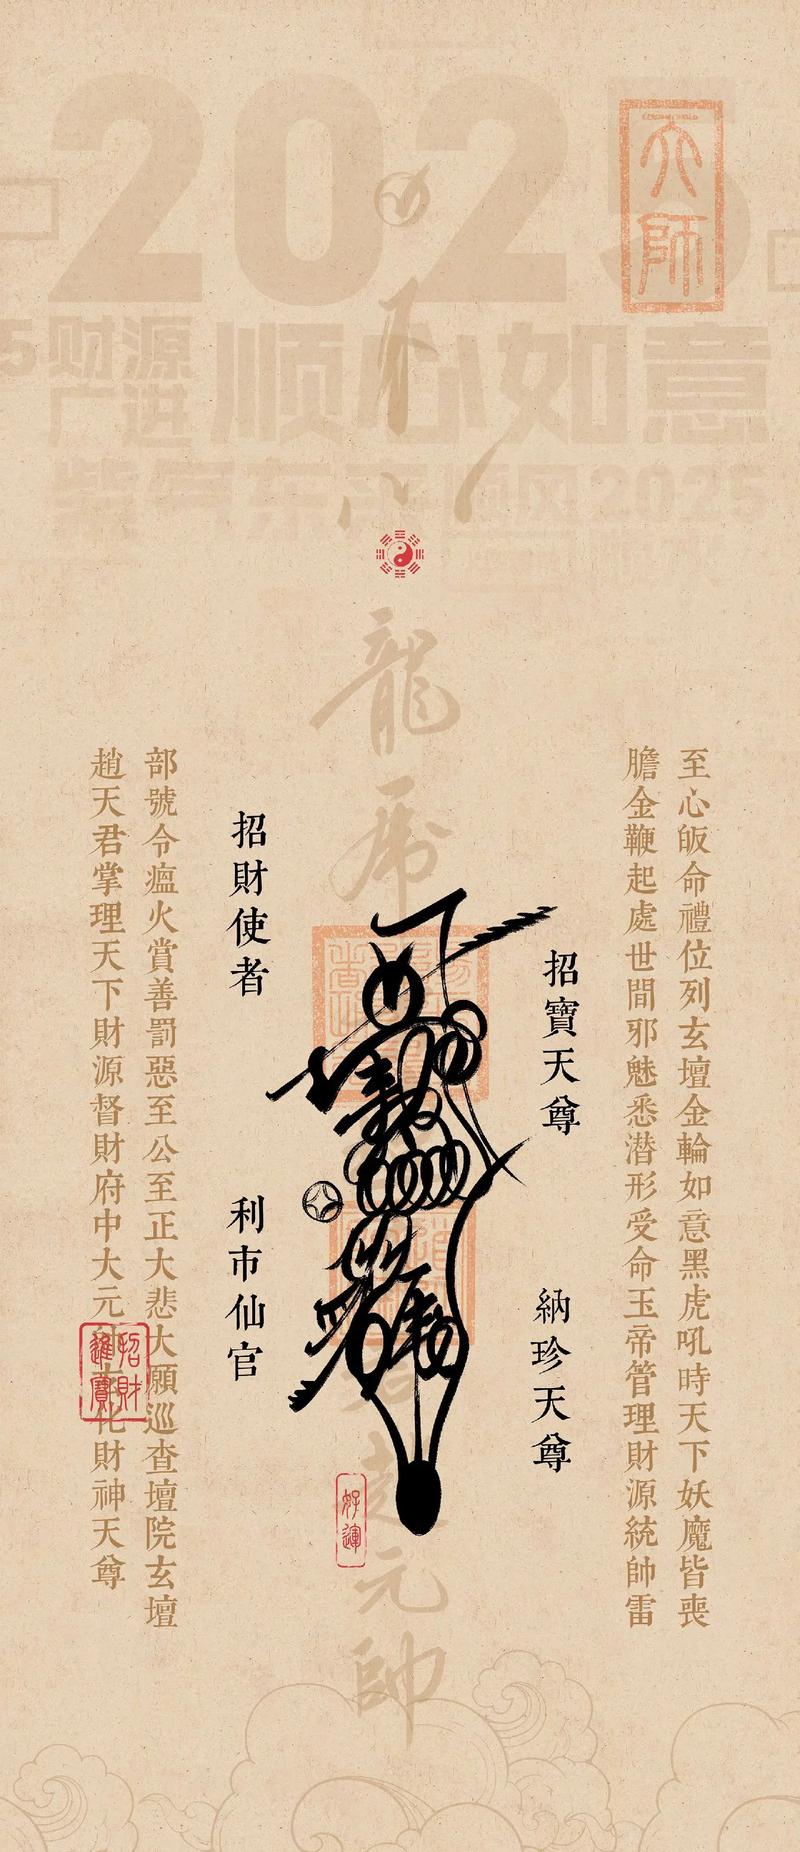 2025
天師
财源
广进
顺心如意
紫气东来
顺风2025
龍
虎
元
帥
至心皈命禮位列玄壇金輪如意黑虎吼時天下妖魔皆喪
膽金鞭起處世間邪魅悉潜形受命玉帝管理財源統帥雷
部號令瘟火賞善罰惡至公至正大悲大願巡查壇院玄壇
趙天君掌理天下財源督財府中大元
化財神天尊
招寶天尊
納珍天尊
招財使者
利市仙官
招財
進寶
好運